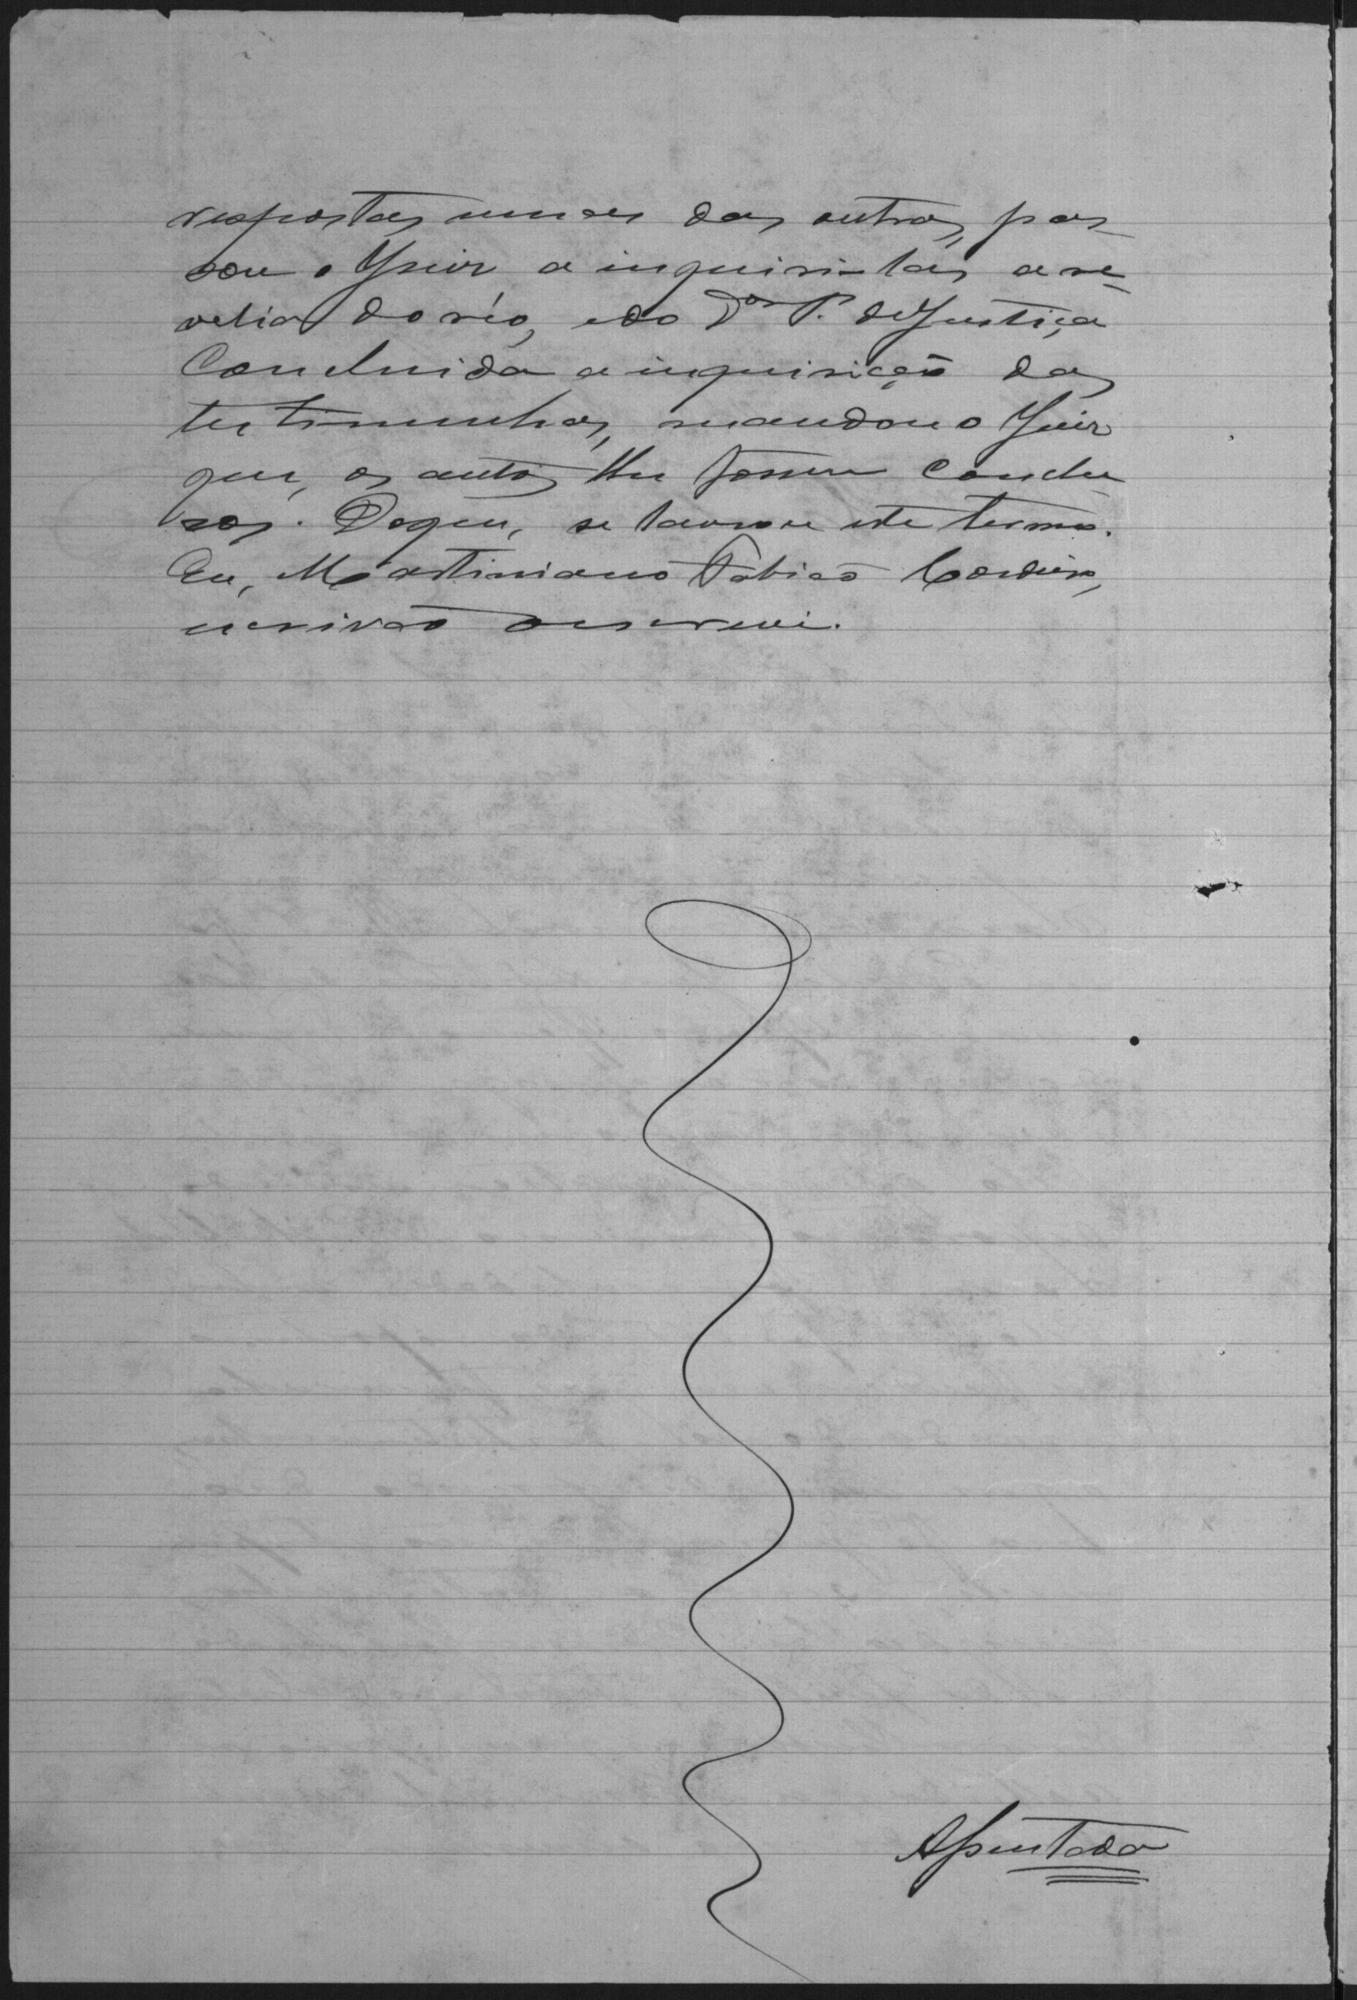 respostas umas das outras, pas
sou o Juiz a inquiril-as, a re-
velia do réo, e do Dor P. de Justiça
Concluida a inquirição das
testimunhas, mandou o Juiz
que, os autos lhe fossem conclu
sos. Doque, se lavrou este termo.
Eu, Martiniano Fabião Cordeiro,
escrivão o escrevi.